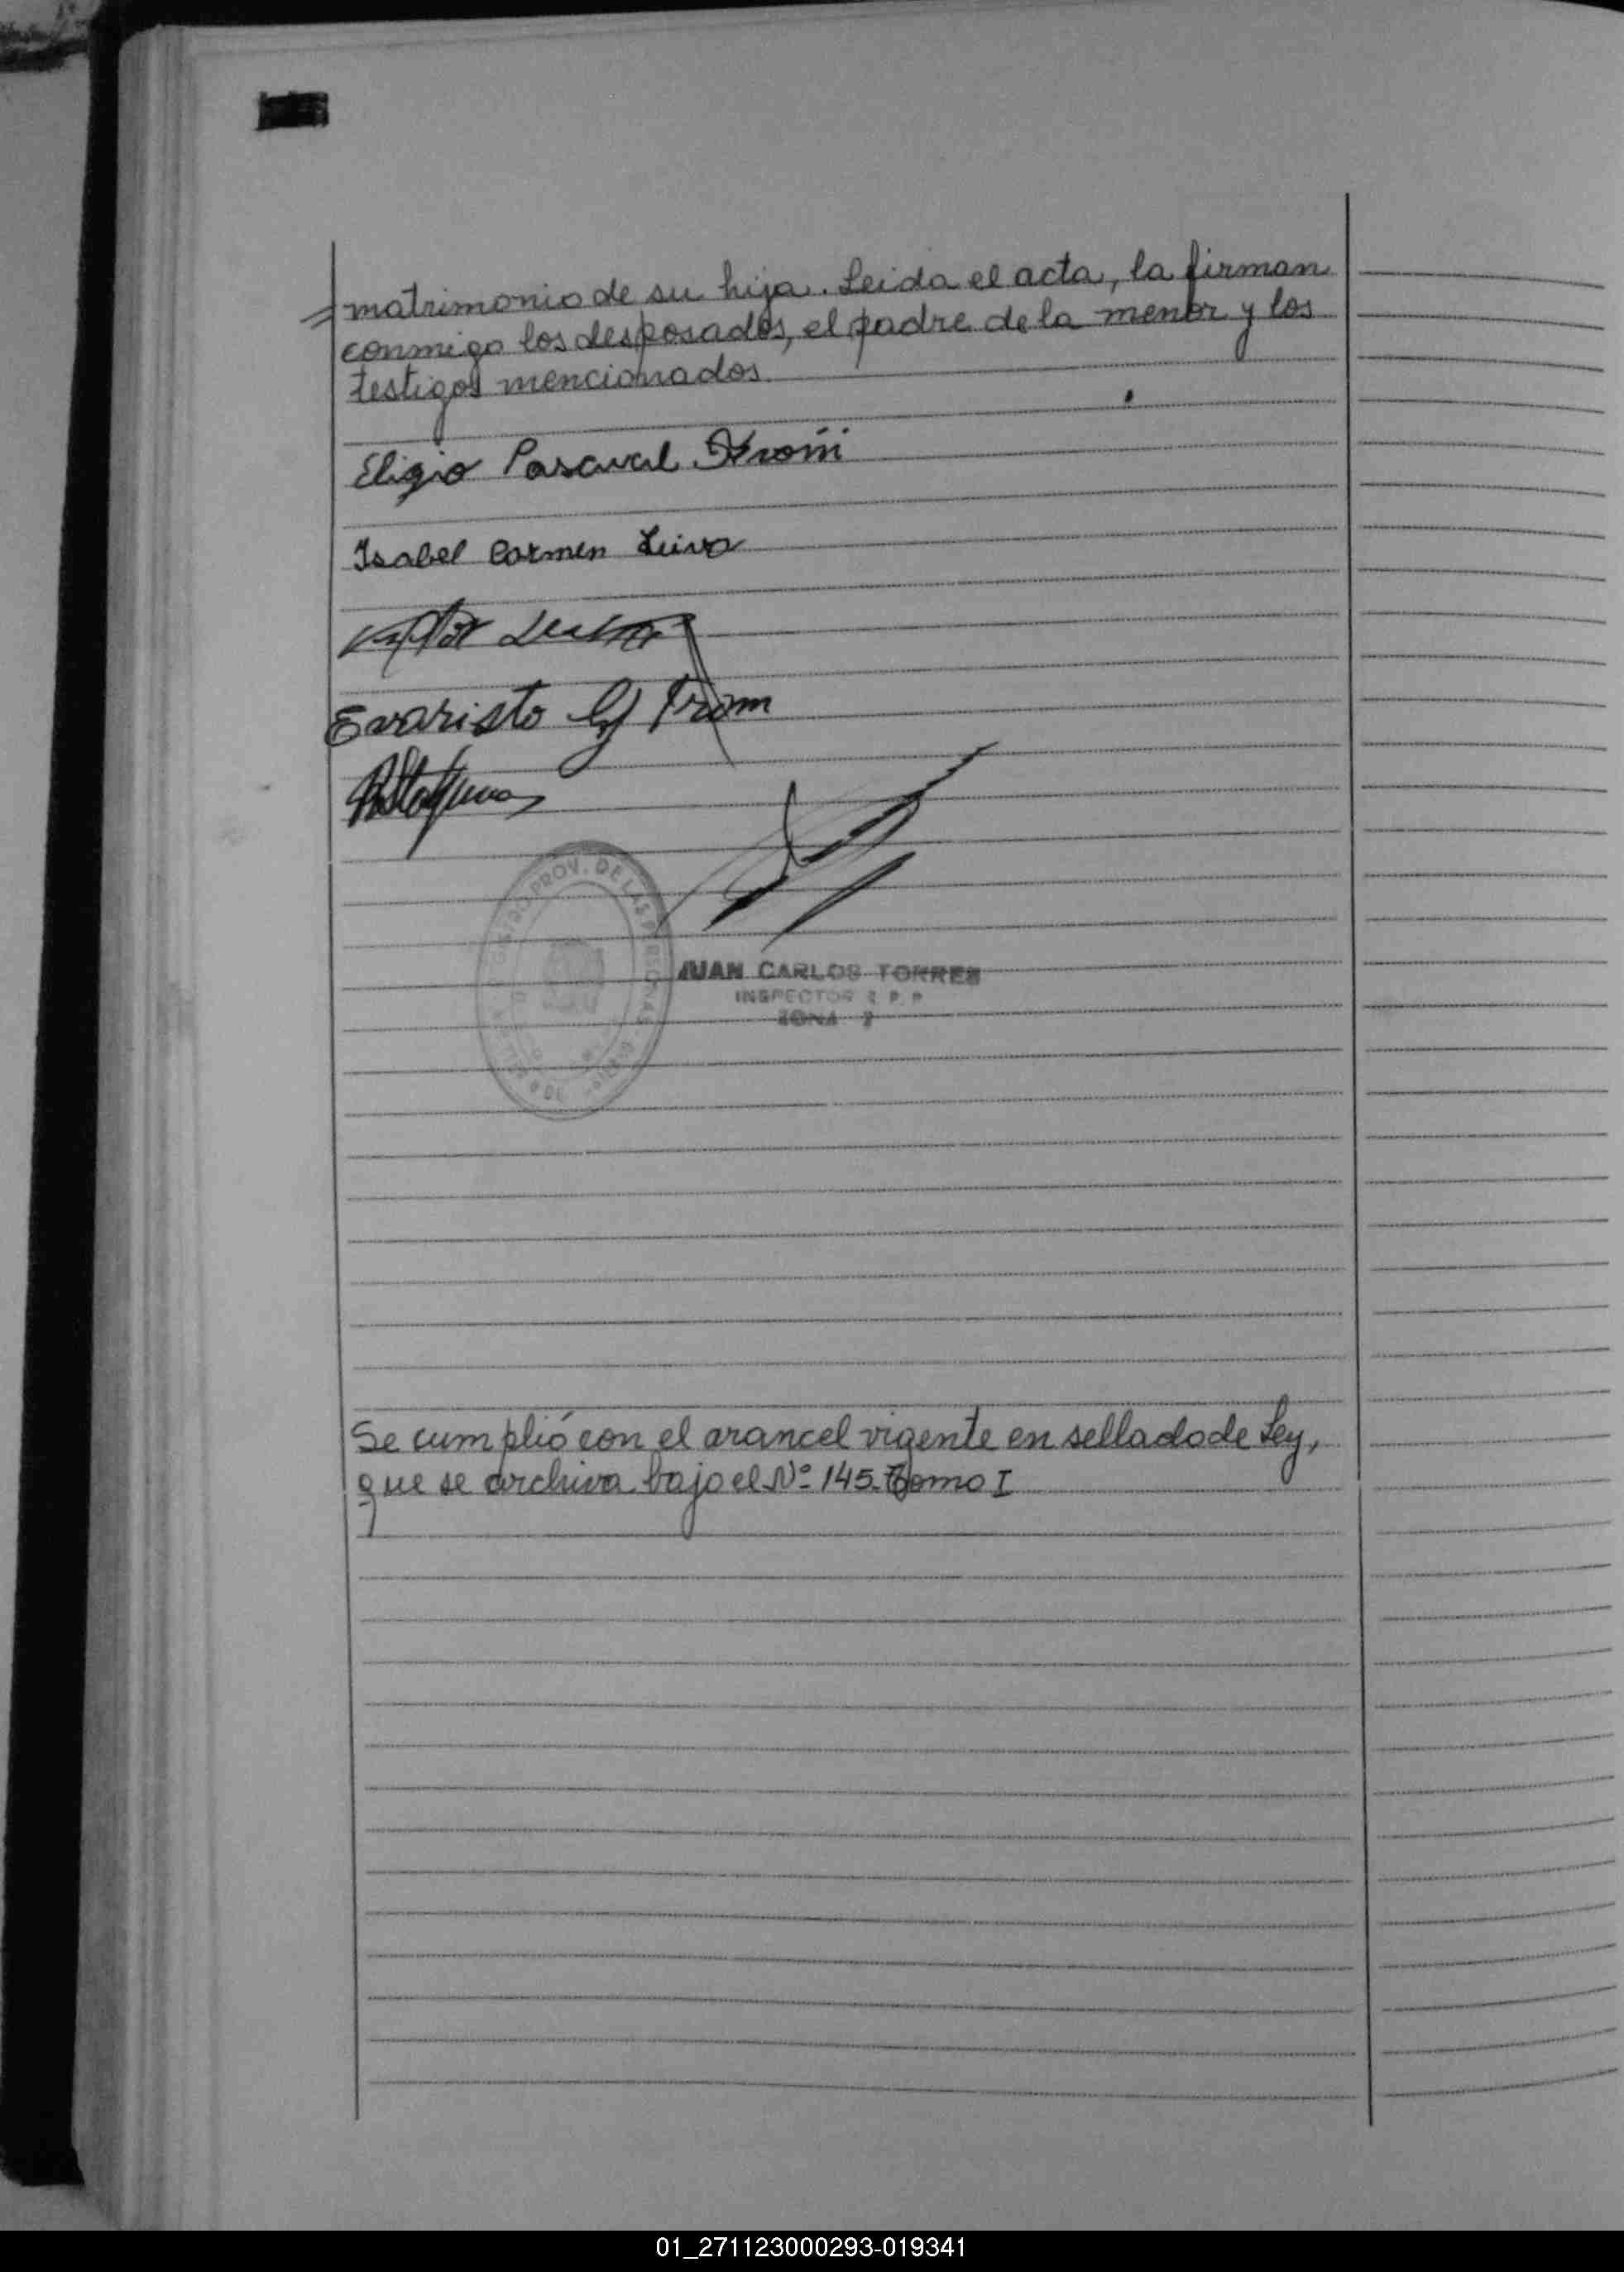 matrimonio de su hija. Leida el acta, la firman
conmigo los desposados, el padre de la menor y los
testigos mencionados.
Eligio Pascual
Isabel Carmen Leiva
Evaristo From
PROV. DE LAS PERSONAS
JUAN CARLOS TORRES
INSPECTOR
ZONA
Se cumplió con el arancel vigente en sellado de Ley,
que se archiva bajo el Nº 145. Tomo I
01_271123000293-019341